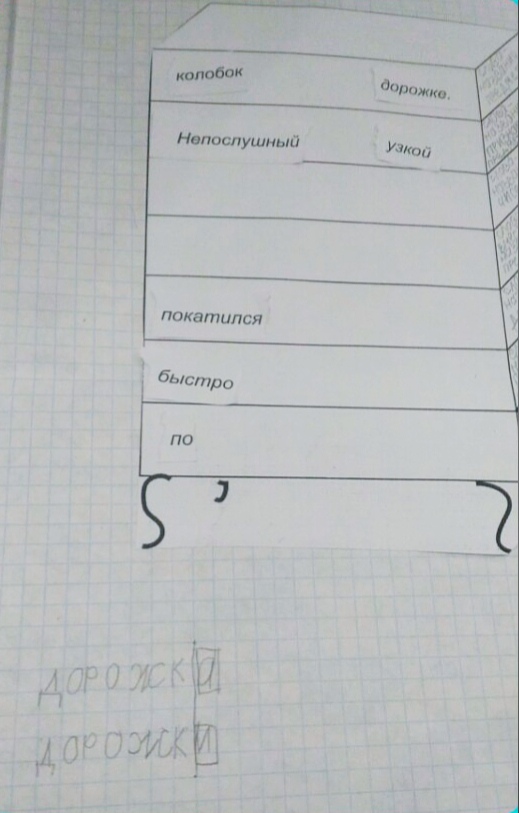 колобок дорожке.
Непослушный узкой
покатился
быстро
по
ДОРОЖКА
ДОРОЖКИ